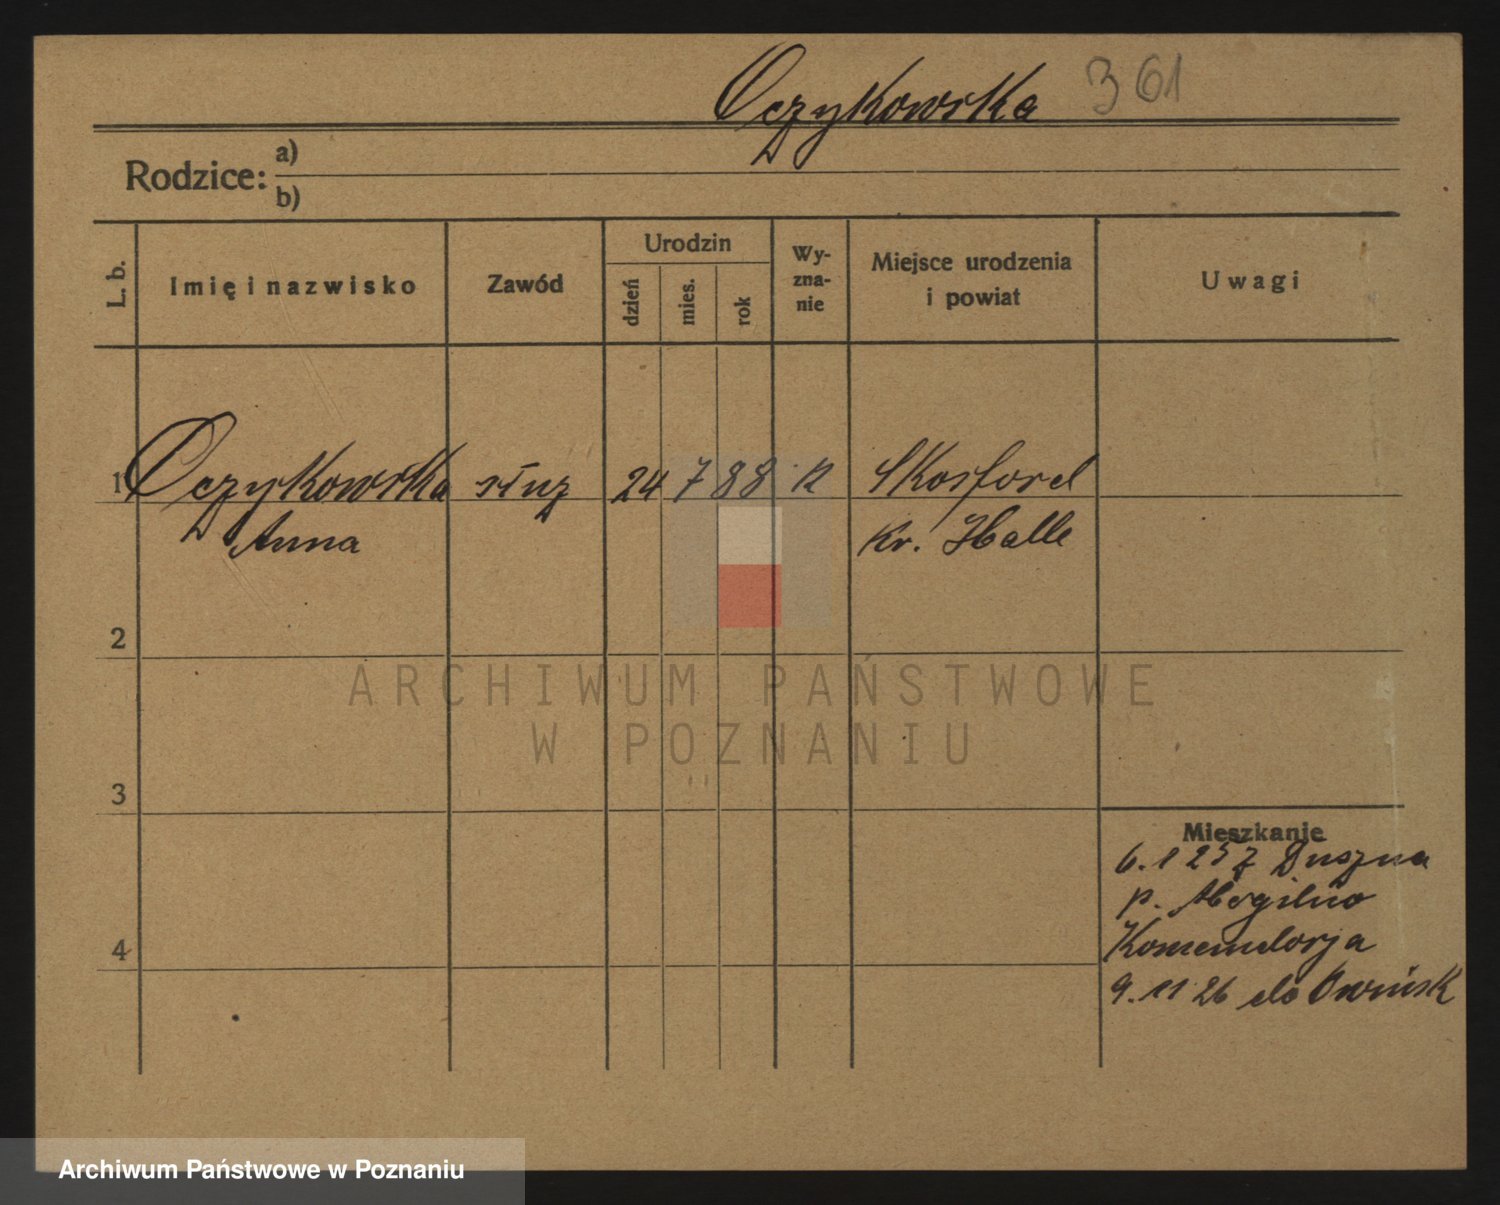 Oczykowska 361
Rodzice: a)
b)
L. b.
Imię i nazwisko
Zawód
Urodzin
dzień
mies.
rok
Wy-
zna-
nie
Miejsce urodzenia
i powiat
Uwagi
1 Oczykowska służ 24 7 88 k Skosford
Anna kr. Halle
2
3
4
Mieszkanie
6.1 25 z Duszna
p. Mogilno
Komendorja
9.11 26 do Owińsk
ARCHIWUM PAŃSTWOWE
W POZNANIU
Archiwum Państwowe w Poznaniu